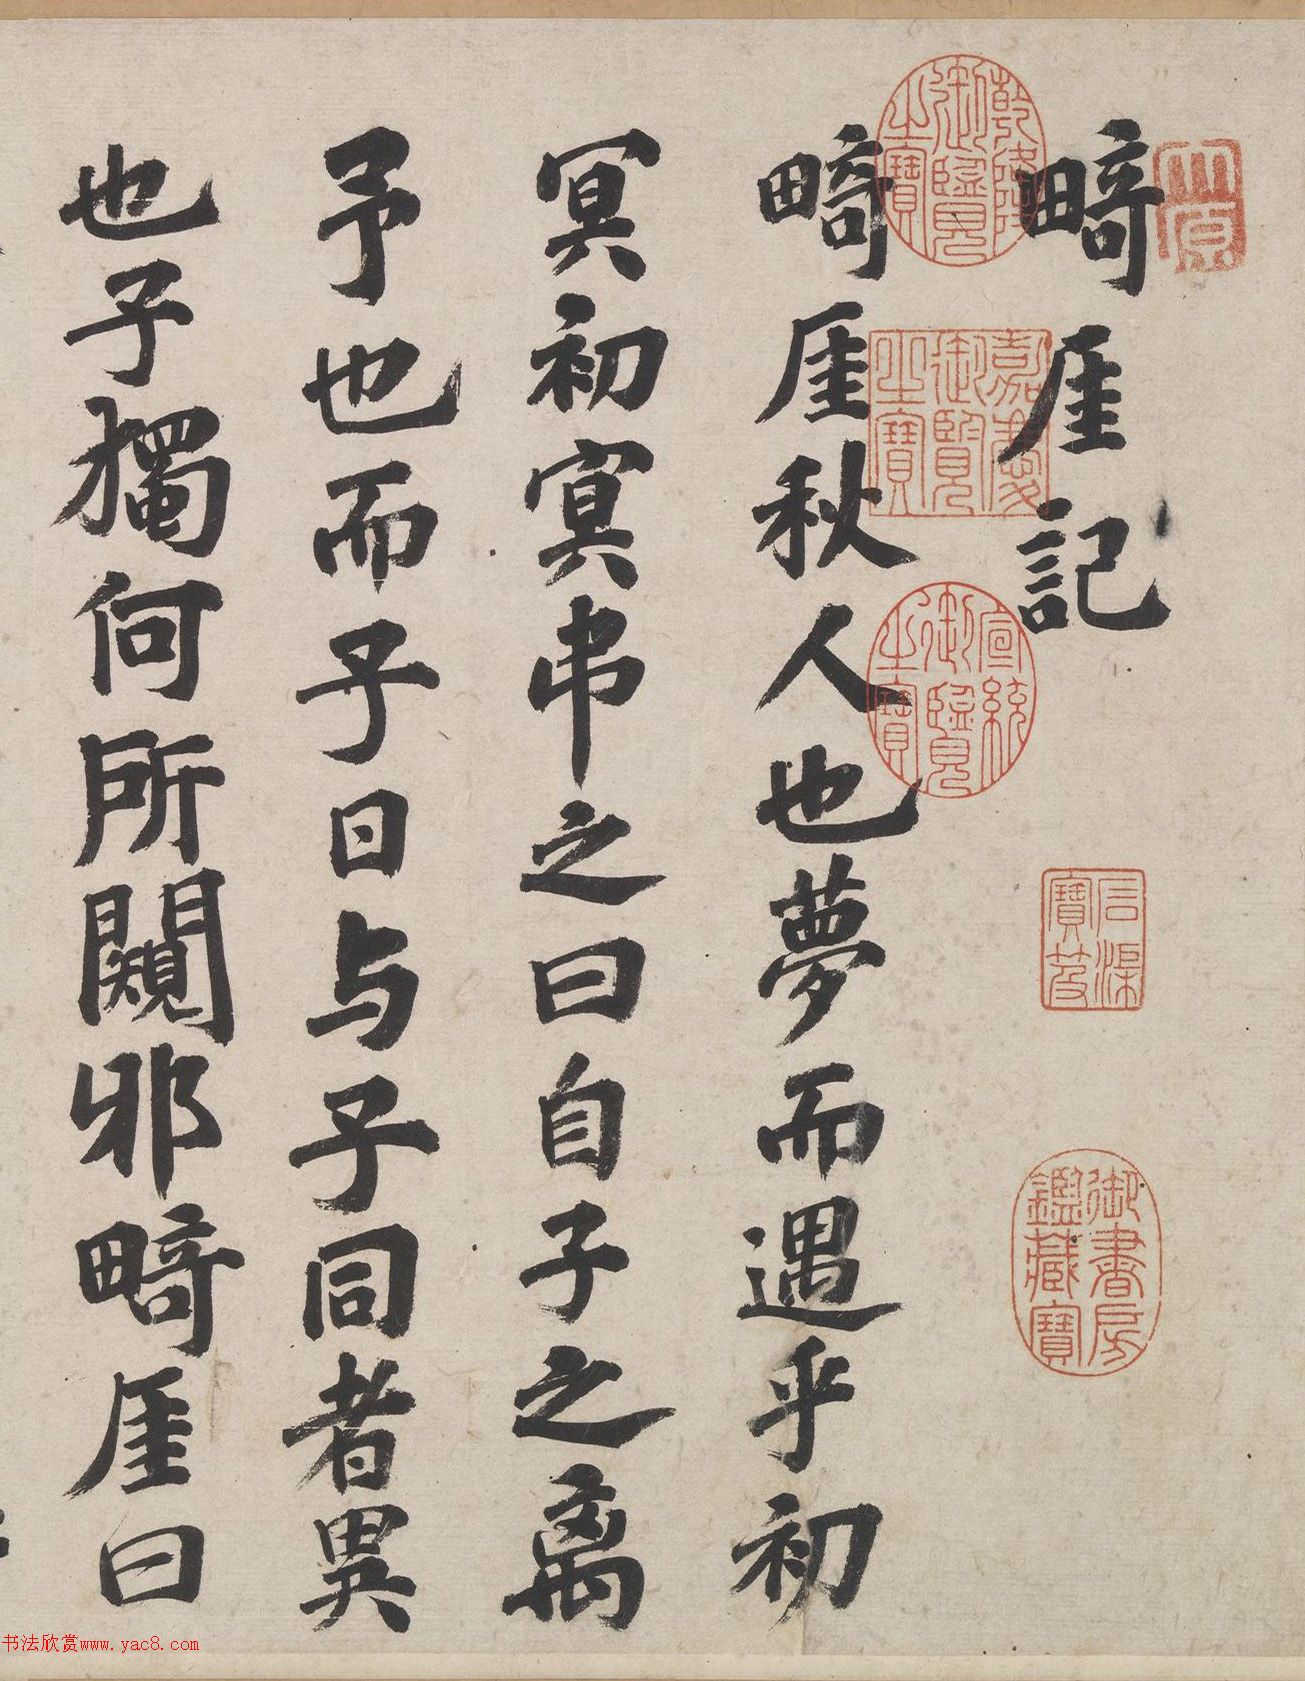 畸厓記
畸厓秋人也夢而遇乎初
冥初寞弔之曰自子之離
予也而子日与子同者異
也子獨何所闚邪畸厓曰
乾隆御覽之寶
嘉慶御覽之寶
宣統御覽之寶
石渠寶笈
御書房鑑藏寶
书法欣赏www.yac8.com